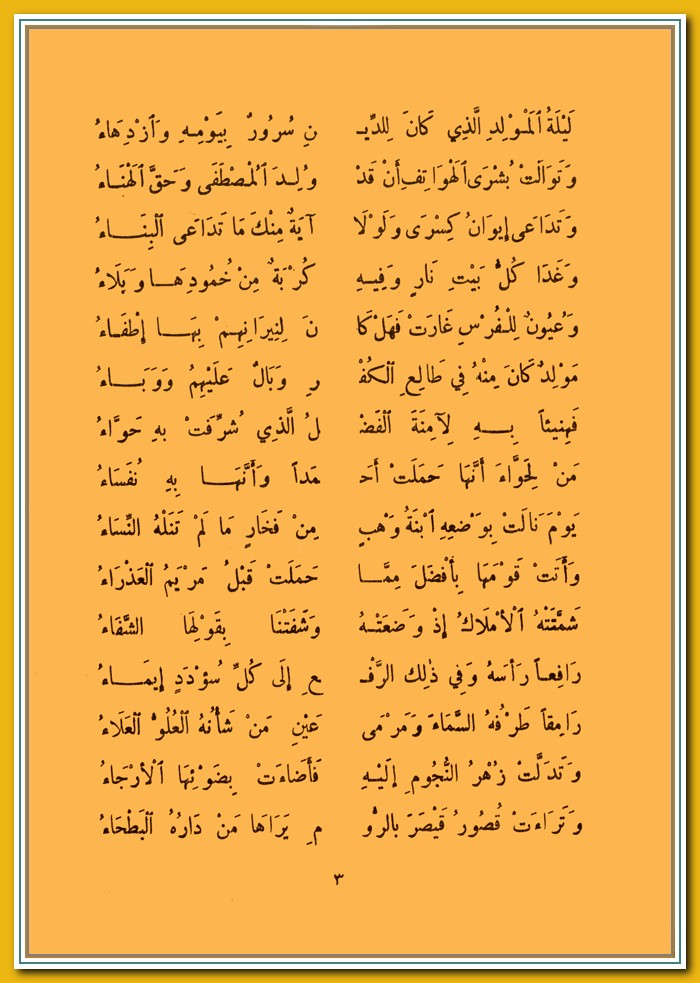 لَيْلَةُ ٱلْمَوْلِدِ الَّذِي كَانَ لِلدِّيـ نِ سُرُورٌ بِيَوْمِهِ وَٱزْدِهَاءُ
وَتَوَالَتْ بُشْرَى ٱلْهَوَاتِفِ أَنْ قَدْ وُلِدَ ٱلْمُصْطَفَى وَحَقَّ ٱلْهَنَاءُ
وَتَدَاعَى إِيوَانُ كِسْرَى وَلَوْلَا آيَةٌ مِنْكَ مَا تَدَاعَى ٱلْبِنَاءُ
وَغَدَا كُلُّ بَيْتِ نَارٍ وَفِيهِ كُرْبَةٌ مِنْ خُمُودِهَا وَبَلَاءُ
وَعُيُونٌ لِلْفُرْسِ غَارَتْ فَهَلْ كَا نَ لِنِيرَانِهِمْ بِهَا إِطْفَاءُ
مَوْلِدٌ كَانَ مِنْهُ فِي طَالِعِ ٱلْكُفْـ رِ وَبَالٌ عَلَيْهِمُ وَوَبَاءُ
فَهَنِيئاً بِهِ لِآمِنَةَ ٱلْفَضْـ لُ الَّذِي شُرِّفَتْ بِهِ حَوَّاءُ
مَنْ لِحَوَّاءَ أَنَّهَا حَمَلَتْ أَحـ مَداً وَأَنَّهَا بِهِ نُفَسَاءُ
يَوْمَ نَالَتْ بِوَضْعِهِ ٱبْنَةُ وَهْبٍ مِنْ فَخَارٍ مَا لَمْ تَنَلْهُ النِّسَاءُ
وَأَتَتْ قَوْمَهَا بِأَفْضَلَ مِمَّا حَمَلَتْ قَبْلُ مَرْيَمُ ٱلْعَذْرَاءُ
شَمَّتَتْهُ ٱلْأَمْلَاكُ إِذْ وَضَعَتْهُ وَشَفَتْنَا بِقَوْلِهَا الشَّفَاءُ
رَافِعاً رَأْسَهُ وَفِي ذٰلِكَ الرَّفْـ عِ إِلَى كُلِّ سُؤْدَدٍ إِيمَاءُ
رَامِقاً طَرْفُهُ السَّمَاءَ وَمَرْمَى عَيْنِ مَنْ شَأْنُهُ ٱلْعُلُوُّ ٱلْعَلَاءُ
وَتَدَلَّتْ زُهْرُ النُّجُومِ إِلَيْهِ فَأَضَاءَتْ بِضَوْئِهَا ٱلْأَرْجَاءُ
وَتَرَاءَتْ قُصُورُ قَيْصَرَ بِالرُّو مِ يَرَاهَا مَنْ دَارُهُ ٱلْبَطْحَاءُ
٣